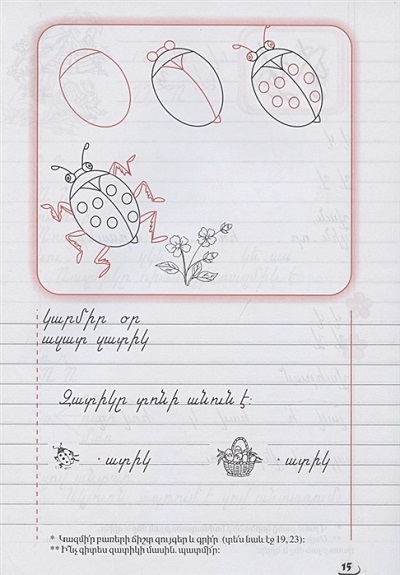 կարմիր օր
ազատ զատիկ
Զատիկը տոնի անուն է:
· ատիկ · ատիկ
* Կազմի՛ր բառերի ճիշտ զույգեր և գրի՛ր (տե՛ս նաև էջ 19, 23):
** Ի՞նչ գիտես զատիկի մասին. պատմի՛ր:
15